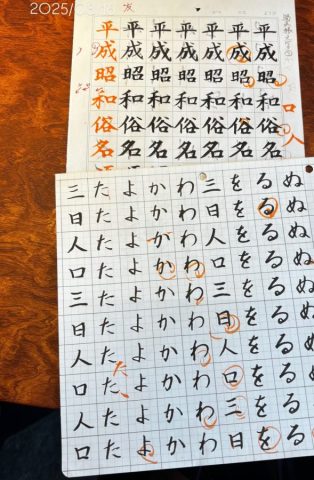 平成昭和俗名
平成昭和俗名
平成昭和俗名
平成昭和俗名
平成昭和俗名
平成昭和俗名
平成昭和俗名
口人
ぬぬぬぬぬぬぬぬぬ
るるるるるるるるるる
をををををををををを
三日人口三日人口三日
わわわわわわわわわわ
かかかかかかかかかか
よよよよよよよよよよ
たたたたたたたたたた
た
三日人口三日人口人口